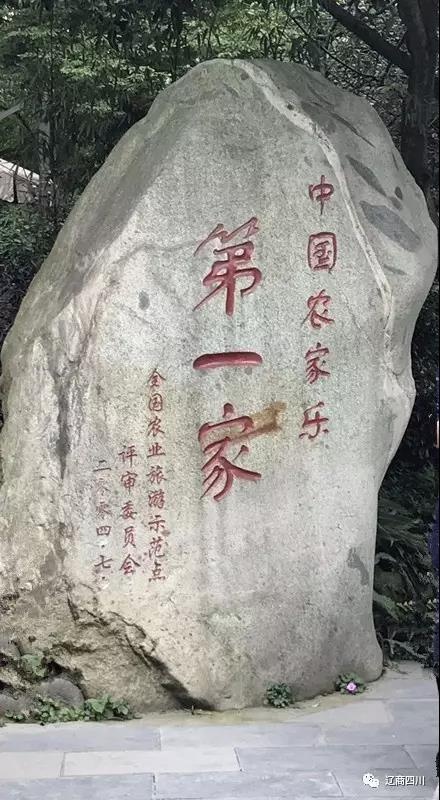 中国农家乐
第一家
全国农业旅游示范点
评审委员会
二零零四·七·
辽商四川